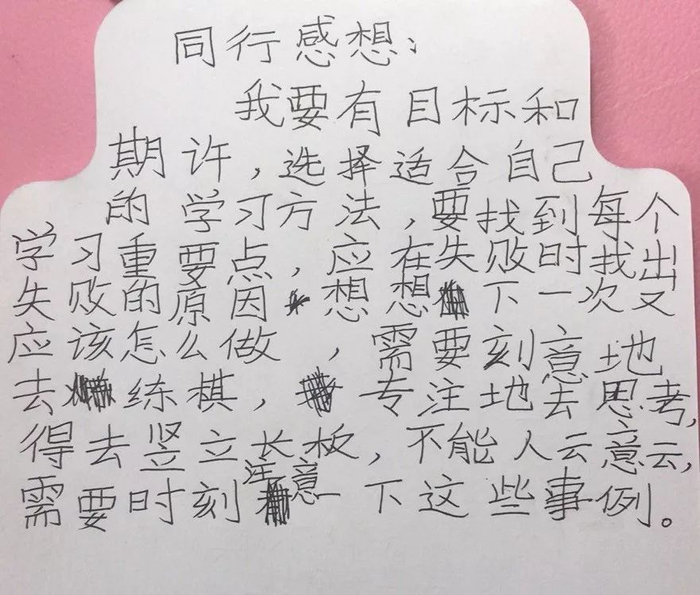 同行感想:
我要有目标和
期许,选择适合自己
的学习方法,要找到每个
学习重要点,应在失败时找出
失败的原因 想想 下一次又
应该怎么做,需要刻意地
去 练棋, 专注地去思考,
得去竖立长板,不能人云意云,
需要时刻注意一下这些事例。